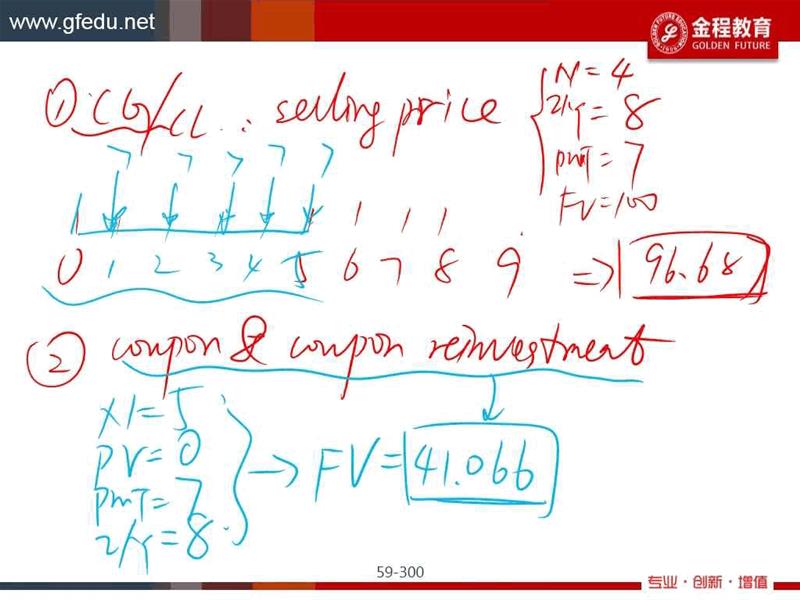 www.gfedu.net
金程教育
GOLDEN FUTURE
① CG/CL : selling price
N = 4
I/Y = 8
PMT = 7
FV = 100
7 7 7 7 7
0 1 2 3 4 5 6 7 8 9
=> 96.68
② coupon & coupon reinvestment
N = 5
PV = 0
PMT = 7
I/Y = 8
→ FV = 41.066
59-300
专业·创新·增值